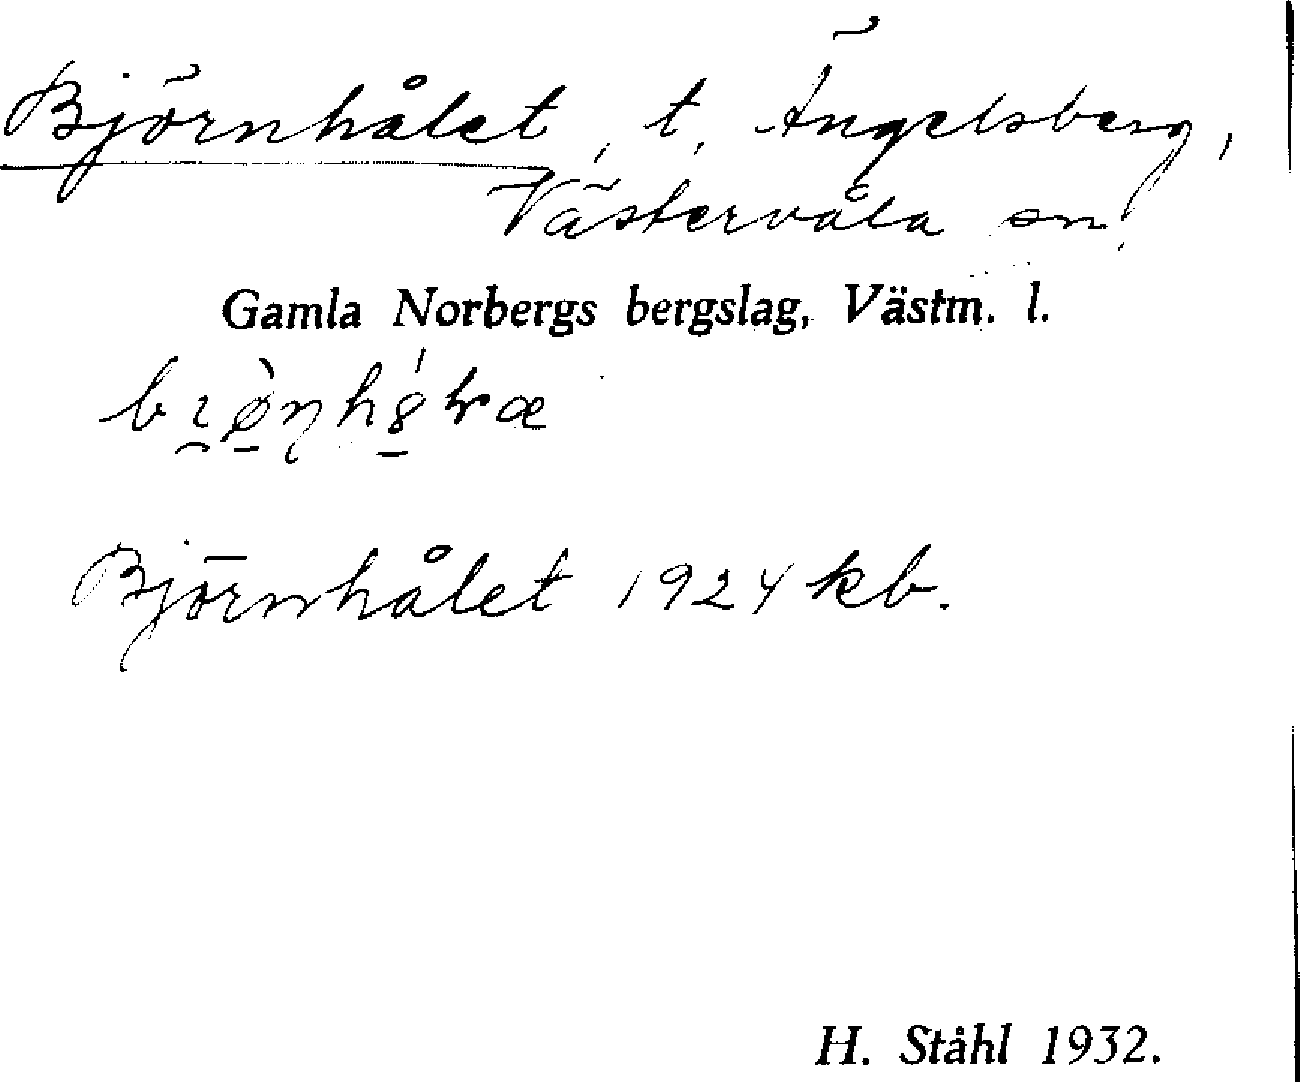 Björnhålet, t. Ängelsberg,
Västervåla sn.
Gamla Norbergs bergslag, Västm. l.
Björnhålet 1924 kb.
H. Ståhl 1932.